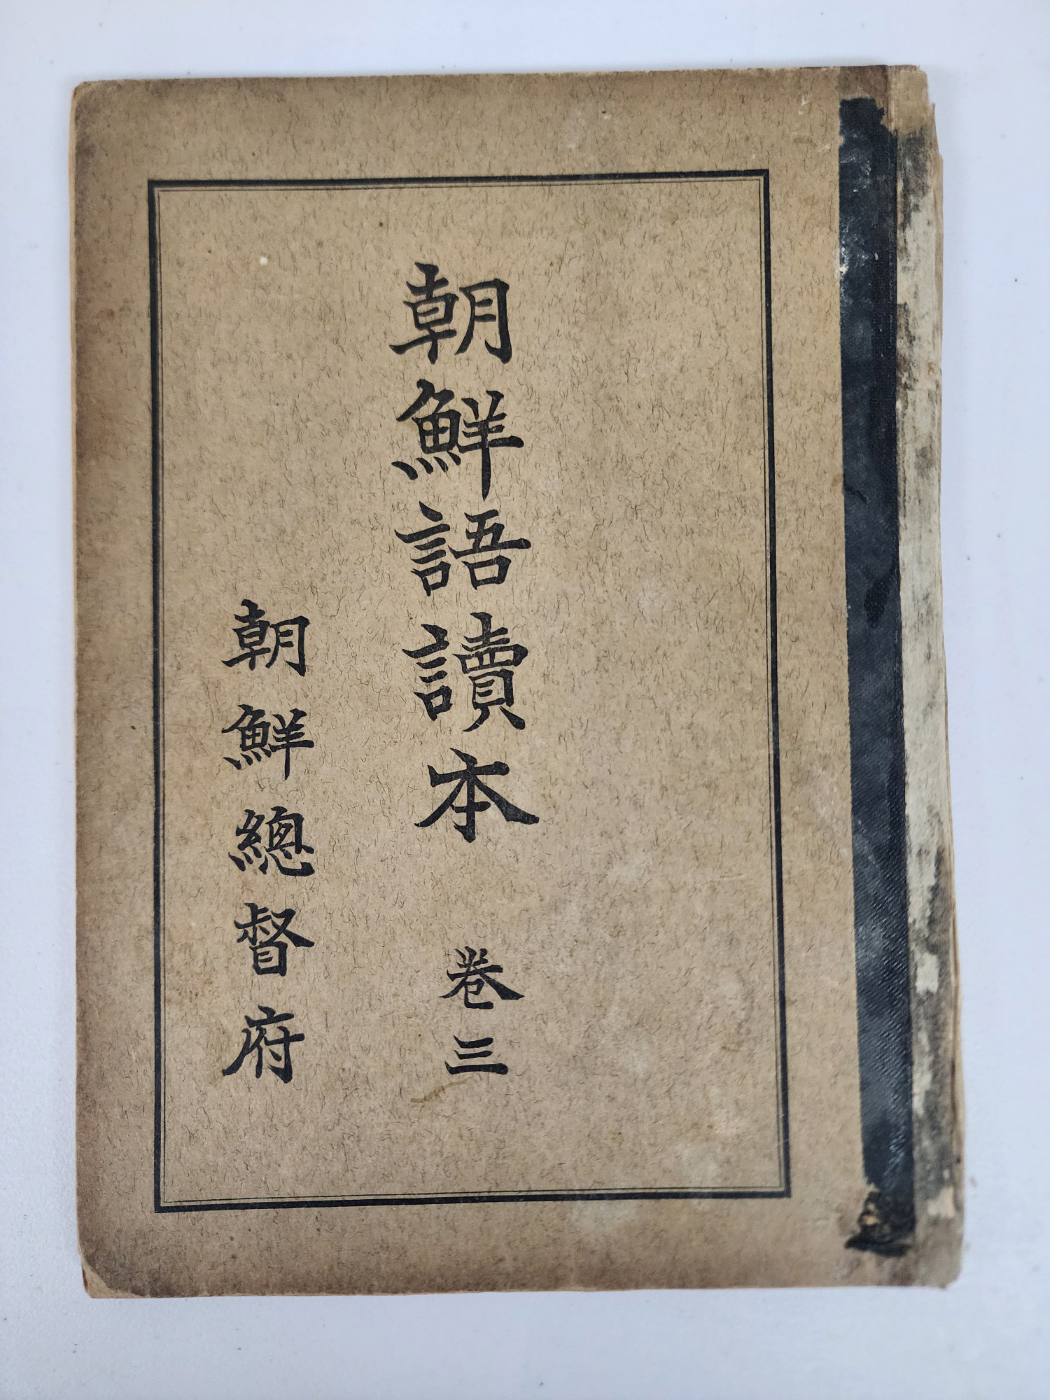 朝鮮語讀本 卷三
朝鮮總督府